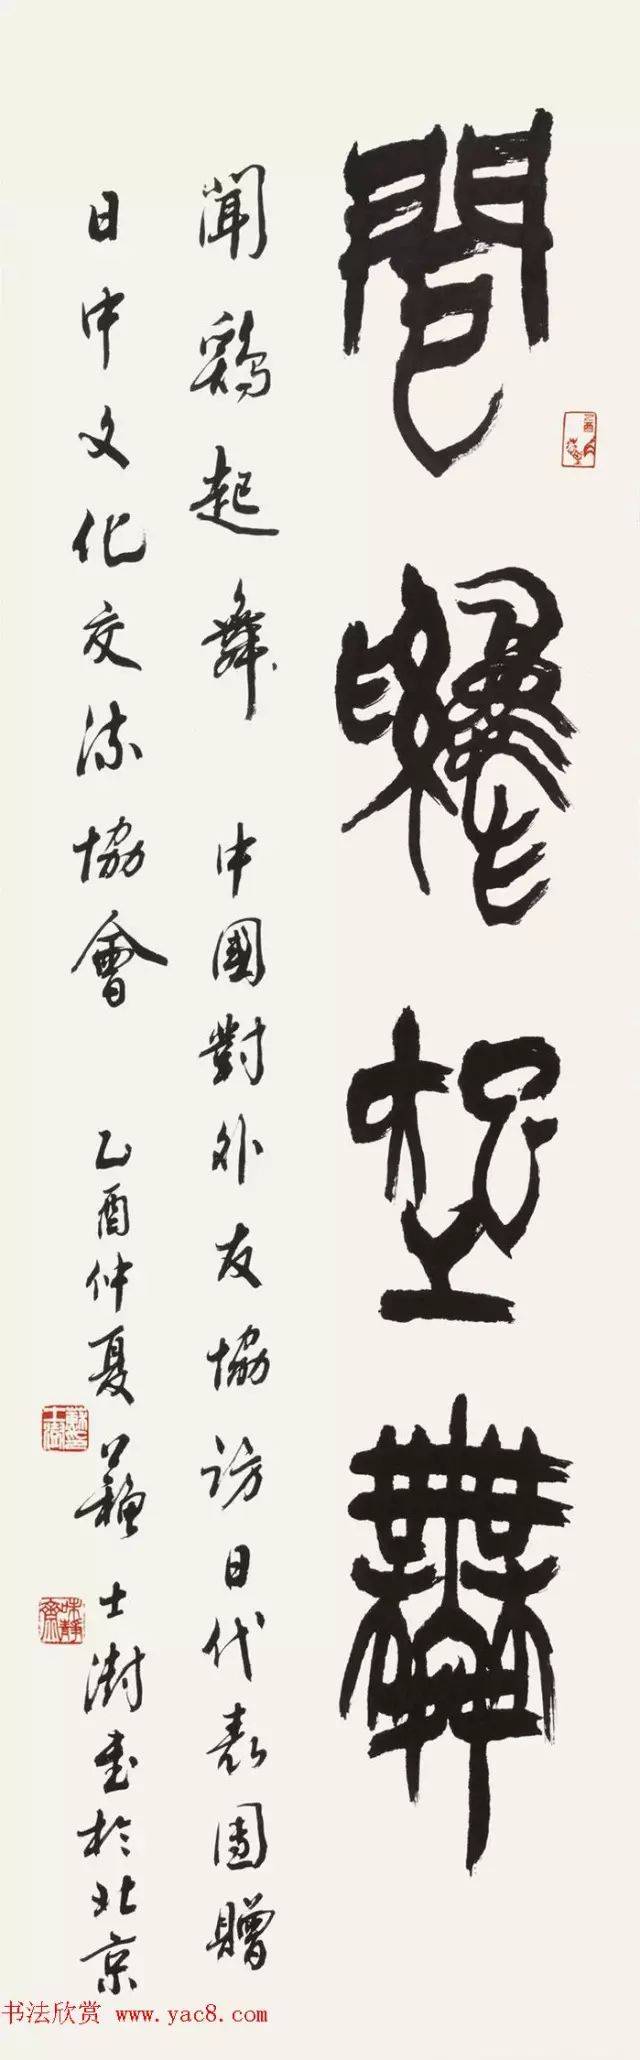 聞雞起舞
聞鷄起舞 中國對外友協訪日代表團贈
日中文化交流協會 乙酉仲夏 蘇士澍書於北京
乙酉
蘇士澍
味靜齋
书法欣赏 www.yac8.com